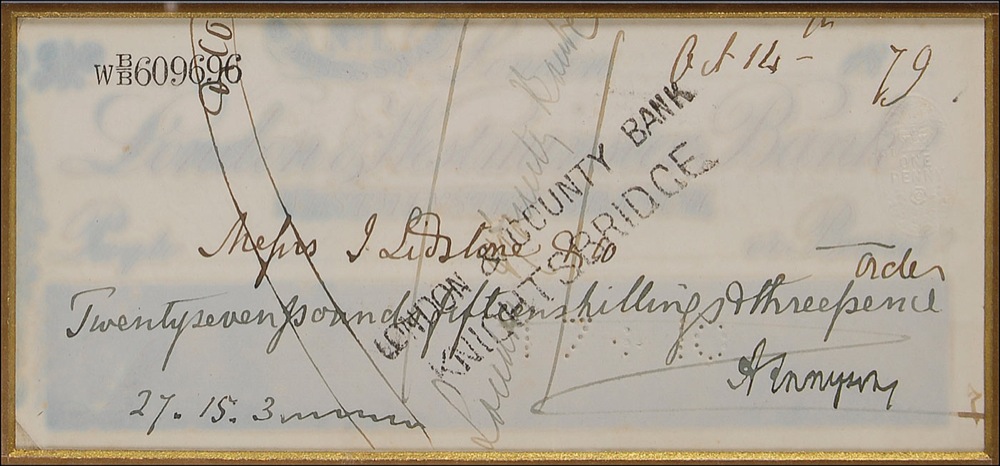 W B/B 609696
Oct 14th 79
London & Westminster Bank
ONE PENNY
LONDON & COUNTY BANK
KNIGHTSBRIDGE
London & County Bank
& Co
Messrs J. Lidstone & Co
order
Twentyseven pounds fifteen shillings & threepence
A Tennyson
27. 15. 3